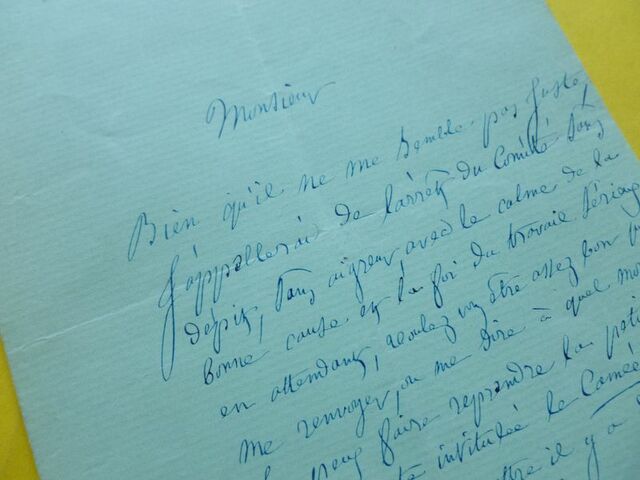 Monsieur
Bien qu'il ne me semble pas juste,
j'appellerai de l'arrêt du Comité sans
dépit, sans aigreur, avec le calme de la
bonne cause et la foi du travail sérieux
en attendant, voulez vous être assez bon p
me renvoyer, ou me dire à quel mo
je peux faire reprendre la peti
intitulée le Camée
il y a